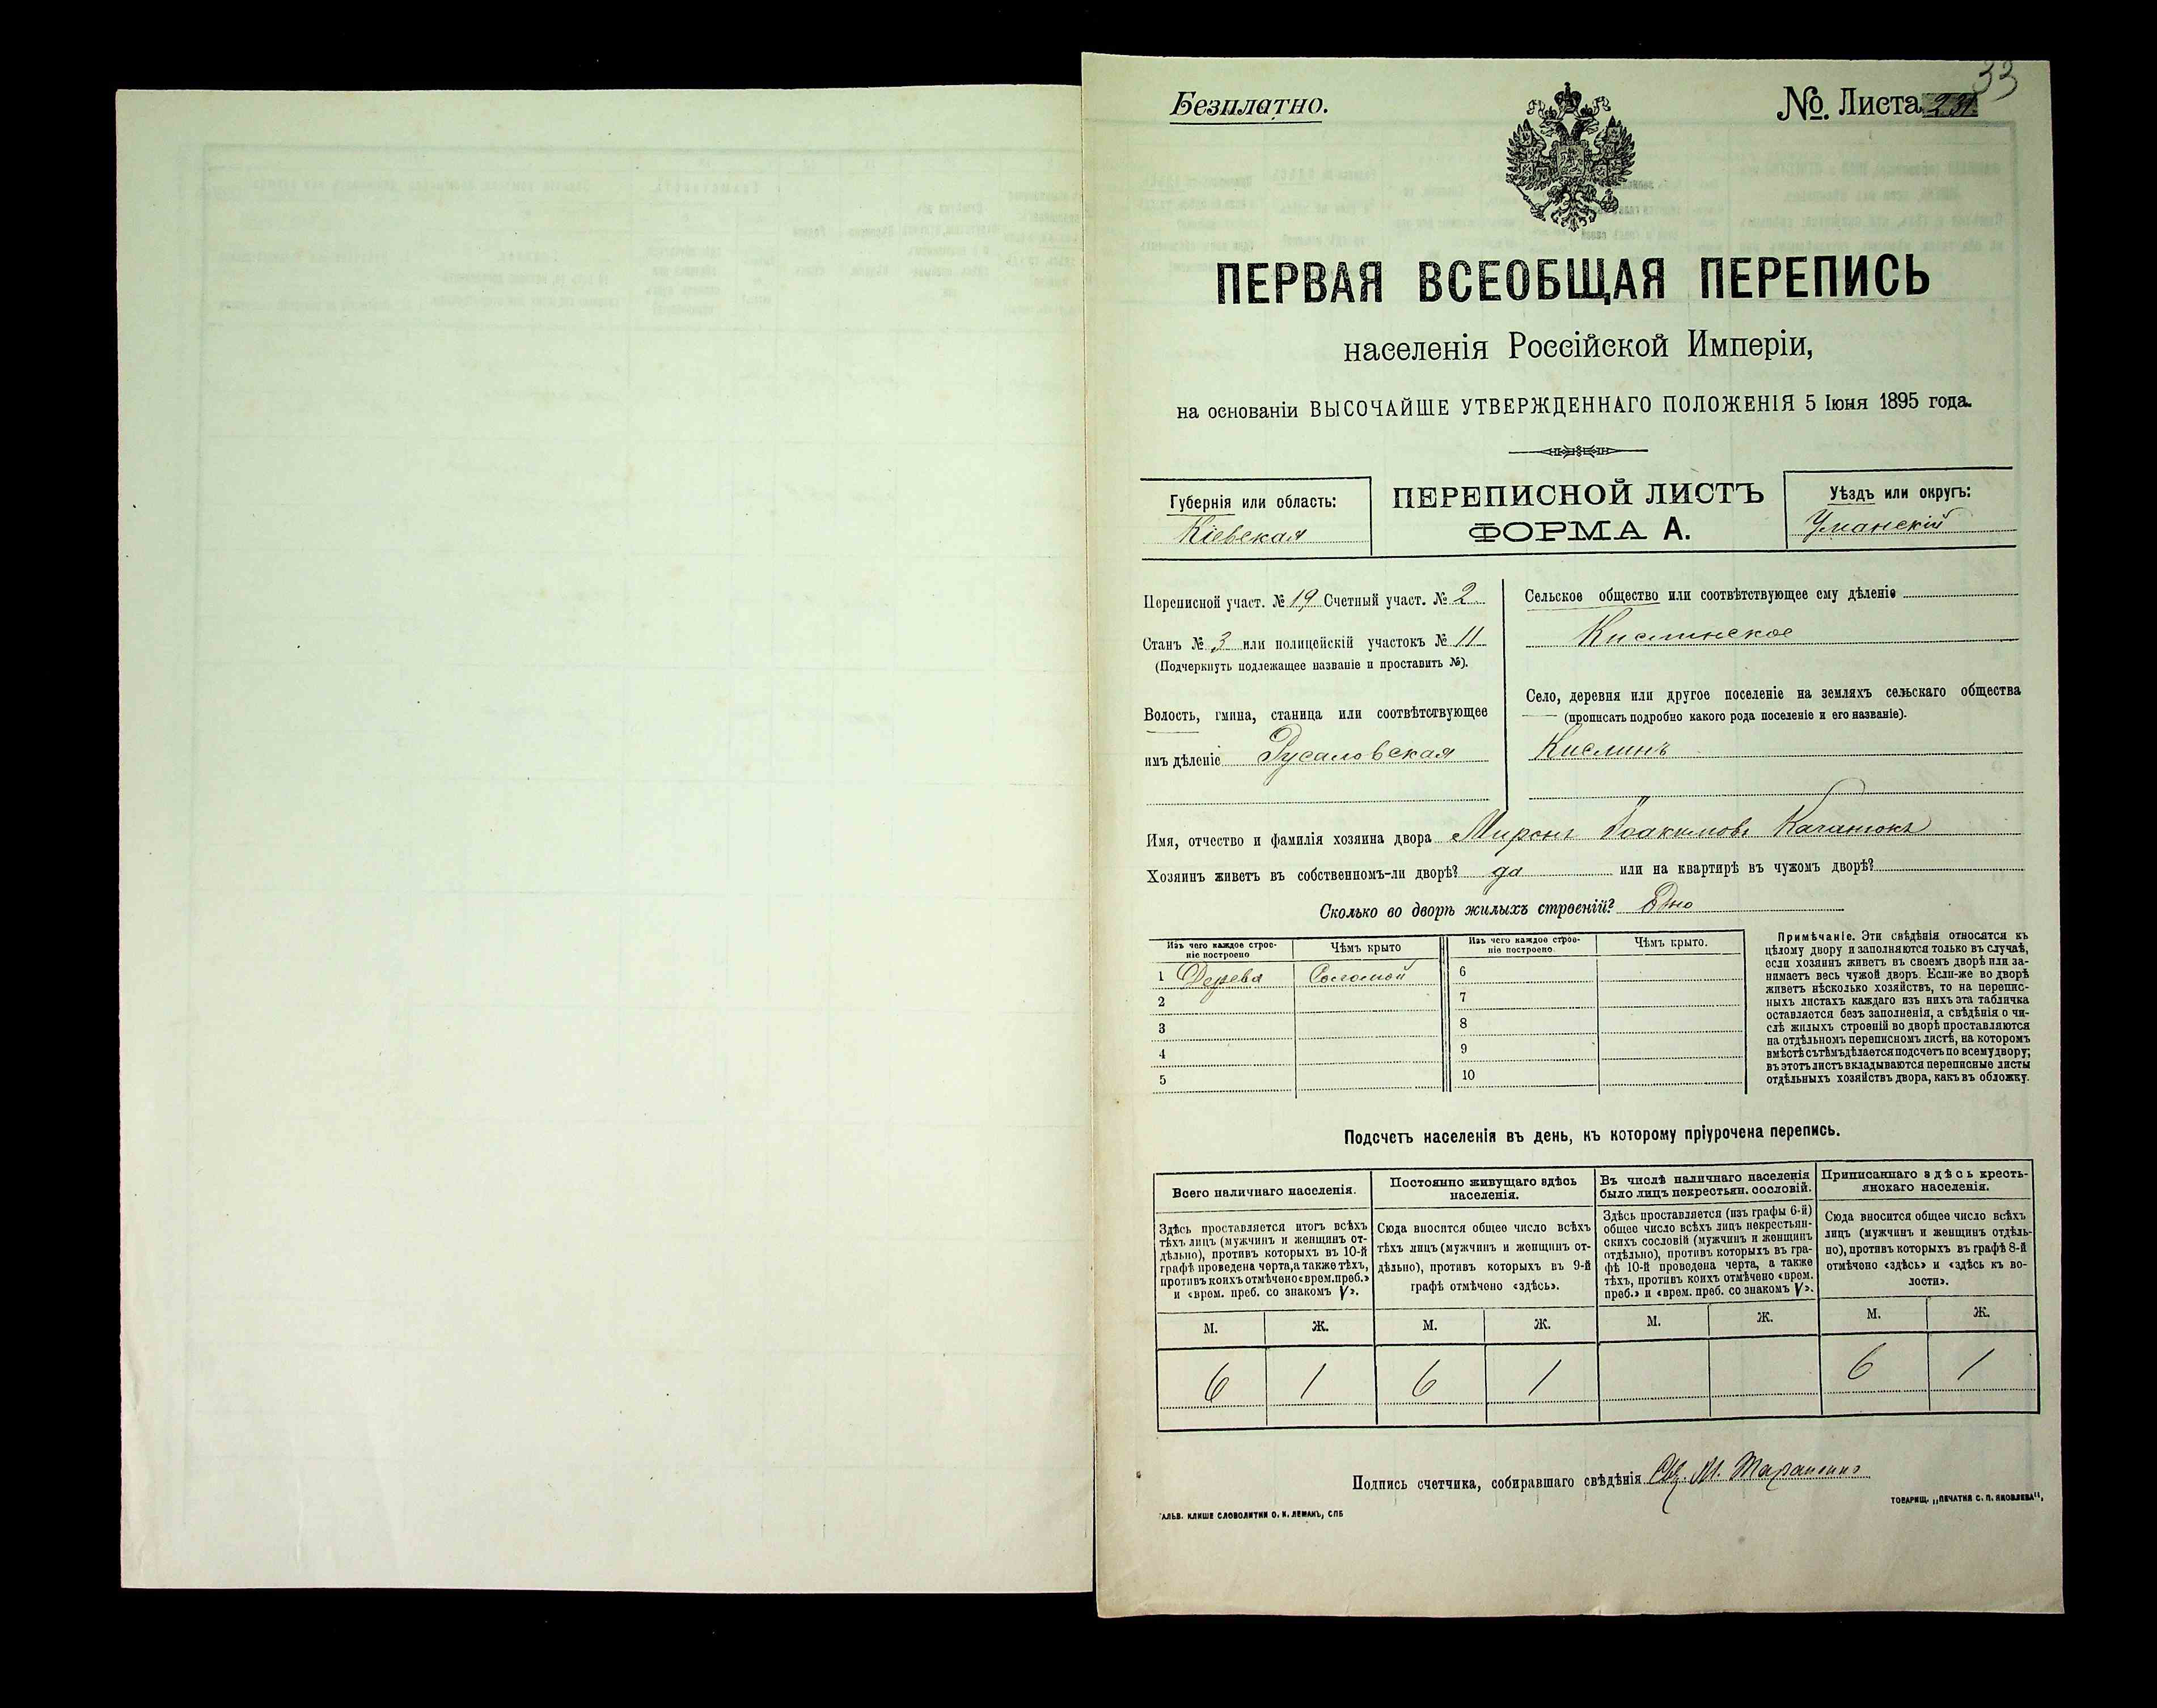 33
Безплатно.
№. Листа 231
ПЕРВАЯ ВСЕОБЩАЯ ПЕРЕПИСЬ
населенія Россійской Имперіи,
на основаніи ВЫСОЧАЙШЕ УТВЕРЖДЕННАГО ПОЛОЖЕНІЯ 5 Іюня 1895 года.
Губернія или область:
Кіевская
ПЕРЕПИСНОЙ ЛИСТЪ
ФОРМА А.
Уѣздъ или округъ:
Уманскій
Переписной участ. № 19 Счетный участ. № 2
Станъ № 3 или полицейскій участокъ № 11
(Подчеркнуть подлежащее названіе и проставить №).
Волость, гмина, станица или соотвѣтствующее
имъ дѣленіе Русаловская
Сельское общество или соотвѣтствующее ему дѣленіе
Кислинское
Село, деревня или другое поселеніе на земляхъ сельскаго общества
(прописать подробно какого рода поселеніе и его названіе).
Кислинъ
Имя, отчество и фамилія хозяина двора Миронъ Іоакимовъ Качанюкъ
Хозяинъ живетъ въ собственномъ-ли дворѣ? да или на квартирѣ въ чужомъ дворѣ?
Сколько во дворѣ жилыхъ строеній? Одно
Изъ чего каждое строе-
ніе построено
Чѣмъ крыто
Изъ чего каждое строе-
ніе построено
Чѣмъ крыто.
1 Дерева Соломой 6
2 7
3 8
4 9
5 10
Примѣчаніе. Эти свѣдѣнія относятся къ
цѣлому двору и заполняются только въ случаѣ,
если хозяинъ живетъ въ своемъ дворѣ или за-
нимаетъ весь чужой дворъ. Если-же во дворѣ
живетъ нѣсколько хозяйствъ, то на перепис-
ныхъ листахъ каждаго изъ нихъ эта табличка
оставляется безъ заполненія, а свѣдѣнія о чи-
слѣ жилыхъ строеній во дворѣ проставляются
на отдѣльномъ переписномъ листѣ, на которомъ
вмѣстѣ съ тѣмъ дѣлается подсчетъ по всему двору;
въ этотъ листъ вкладываются переписные листы
отдѣльныхъ хозяйствъ двора, какъ въ обложку.
Подсчетъ населенія въ день, къ которому пріурочена перепись.
Всего наличнаго населенія.
Здѣсь проставляется итогъ всѣхъ
тѣхъ лицъ (мужчинъ и женщинъ от-
дѣльно), противъ которыхъ въ 10-й
графѣ проведена черта, а также тѣхъ,
противъ коихъ отмѣчено «врем. преб.»
и «врем. преб. со знакомъ V».
Постоянно живущаго здѣсь
населенія.
Сюда вносится общее число всѣхъ
тѣхъ лицъ (мужчинъ и женщинъ от-
дѣльно), противъ которыхъ въ 9-й
графѣ отмѣчено «здѣсь».
Въ числѣ наличнаго населенія
было лицъ некрестьян. сословій.
Здѣсь проставляется (изъ графы 6-й)
общее число всѣхъ лицъ некрестьян-
скихъ сословій (мужчинъ и женщинъ
отдѣльно), противъ которыхъ въ гра-
фѣ 10-й проведена черта, а также
тѣхъ, противъ коихъ отмѣчено «врем.
преб.» и «врем. преб. со знакомъ V».
Приписаннаго здѣсь кресть-
янскаго населенія.
Сюда вносится общее число всѣхъ
лицъ (мужчинъ и женщинъ отдѣль-
но), противъ которыхъ въ графѣ 8-й
отмѣчено «здѣсь» и «здѣсь къ во-
лости».
М. Ж. М. Ж. М. Ж. М. Ж.
6 1 6 1 6 1
Подпись счетчика, собиравшаго свѣдѣнія М. Тараненко
ГАЛЬВ. КЛИШЕ СЛОВОЛИТНИ О. И. ЛЕМАНЪ, СПБ
ТОВАРИЩ. „ПЕЧАТНЯ С. П. ЯКОВЛЕВА",